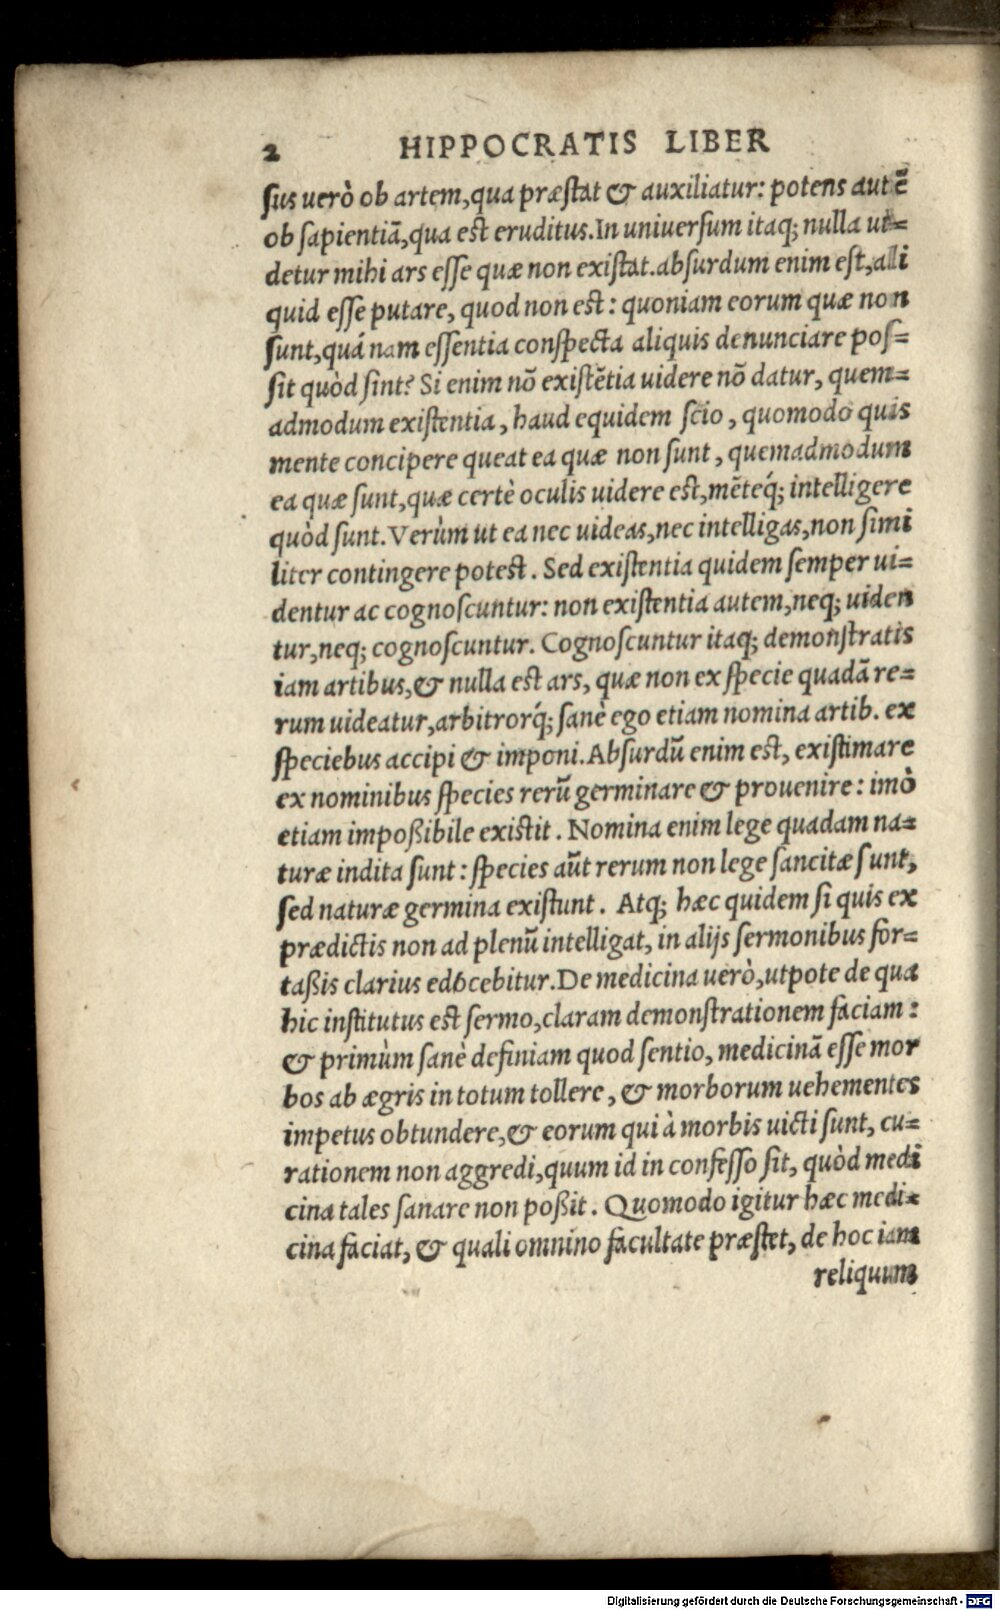 2 HIPPOCRATIS LIBER
ſus uerò ob artem, qua præſtat & auxiliatur: potens autẽ
ob ſapientiã, qua eſt eruditus. In uniuerſum itaq; nulla ui-
detur mihi ars eſſe quæ non exiſtat. abſurdum enim eſt, ali
quid eſſe putare, quod non eſt: quoniam eorum quæ non
ſunt, quá nam eſſentia conſpecta aliquis denunciare poſ-
ſit quòd ſint? Si enim nõ exiſtẽtia uidere nõ datur, quem-
admodum exiſtentia, haud equidem ſcio, quomodo quis
mente concipere queat ea quæ non ſunt, quemadmodum
ea quæ ſunt, quæ certè oculis uidere eſt, mẽteq́; intelligere
quòd ſunt. Verùm ut ea nec uideas, nec intelligas, non ſimi
liter contingere poteſt. Sed exiſtentia quidem ſemper ui-
dentur ac cognoſcuntur: non exiſtentia autem, neq; uiden
tur, neq; cognoſcuntur. Cognoſcuntur itaq; demonſtratis
iam artibus, & nulla eſt ars, quæ non ex ſpecie quadã re-
rum uideatur, arbitrorq́; ſanè ego etiam nomina artib. ex
ſpeciebus accipi & imponi. Abſurdũ enim eſt, exiſtimare
ex nominibus ſpecies rerũ germinare & prouenire: imò
etiam impoßibile exiſtit. Nomina enim lege quadam na-
turæ indita ſunt: ſpecies aũt rerum non lege ſancitæ ſunt,
ſed naturæ germina exiſtunt. Atq; hæc quidem ſi quis ex
prædictis non ad plenũ intelligat, in alijs ſermonibus for-
taßis clarius edocebitur. De medicina uerò, utpote de qua
hic inſtitutus eſt ſermo, claram demonſtrationem faciam:
& primùm ſanè definiam quod ſentio, medicinã eſſe mor
bos ab ægris in totum tollere, & morborum uehementes
impetus obtundere, & eorum qui à morbis uicti ſunt, cu-
rationem non aggredi, quum id in confeſſo ſit, quòd medi
cina tales ſanare non poßit. Quomodo igitur hæc medi-
cina faciat, & quali omnino facultate præſtet, de hoc iam
reliquum
Digitalisierung gefördert durch die Deutsche Forschungsgemeinschaft - DFG